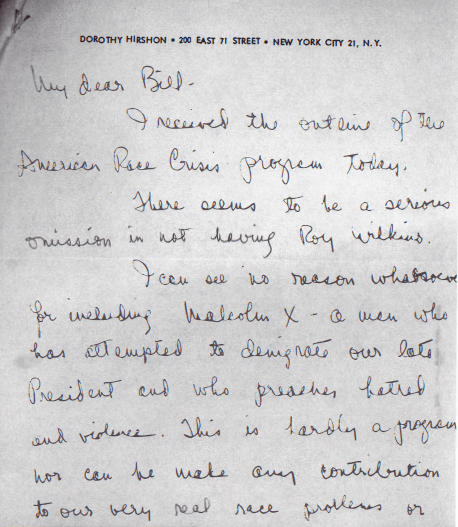 DOROTHY HIRSHON • 200 EAST 71 STREET • NEW YORK CITY 21, N.Y.
My dear Bill-
I received the outline of the
American Race Crisis program today.
There seems to be a serious
omission in not having Roy Wilkins.
I can see no reason whatsoeve
for including Malcolm X - a man who
has attempted to denigrate our late
President and who preaches hatred
and violence. This is hardly a program
nor can he make any contribution
to our very real race problems or